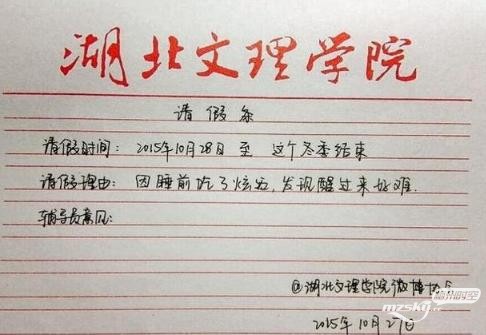 湖北文理学院
请假条
请假时间：2015年10月28日至 这个冬季结束
请假理由：因睡前吃了炫迈，发现醒过来好难.
辅导员意见：
@湖北文理学院微博协会
2015年10月27日
mzsky